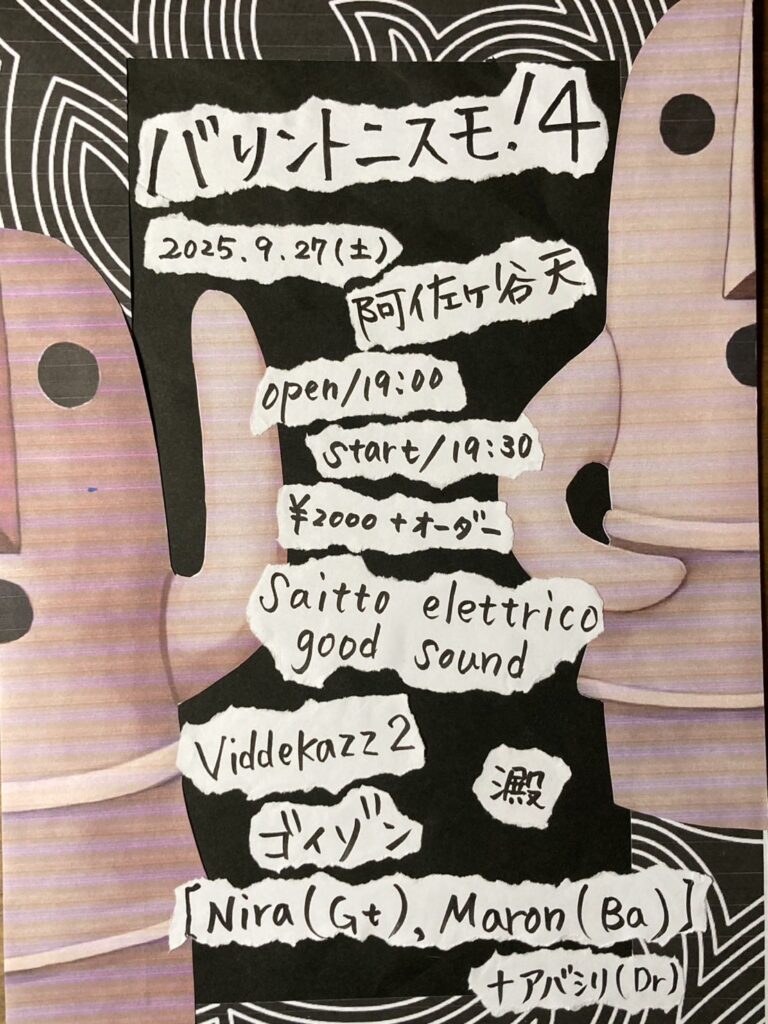 バリントニスモ!4
2025.9.27(土)
阿佐ヶ谷天
open/19:00
start/19:30
¥2000+オーダー
Saitto elettrico
good sound
Viddekazz2
澱
ゴイゾン
[Nira(Gt), Maron(Ba)]
+アバシリ(Dr)